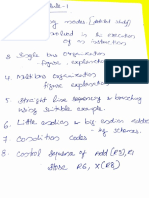 -1
modes [
involved in the execution
of an instruction
3. Single bus organisation
figure, explanation
4. Multibus organization
figure, explanation
5. Straight line sequencing & branching
using suitable example.
6. Little endian & big endian
7. Condition Codes
8. Control sequence of Add (R3), R1
Store R6, X(R8)